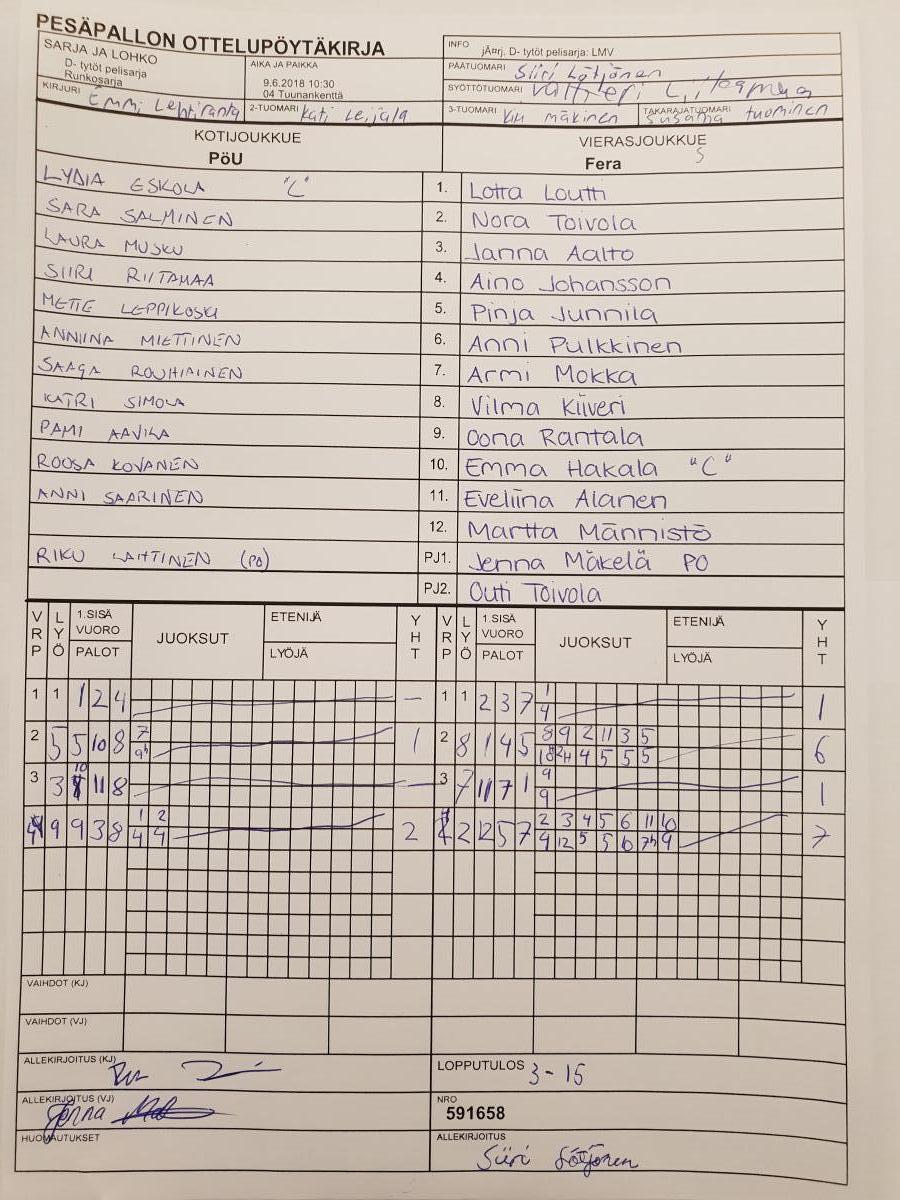 PESÄPALLON OTTELUPÖYTÄKIRJA
SARJA JA LOHKO
D- tytöt pelisarja
Runkosarja
AIKA JA PAIKKA
9.6.2018 10:30
04 Tuunankenttä
INFO jÄ¤rj. D- tytöt pelisarja: LMV
PÄÄTUOMARI Siiri Lötjönen
SYÖTTÖTUOMARI Valtteri
KIRJURI Emmi Lehtiranta
2-TUOMARI Kati Leijala
3-TUOMARI Kiia mäkinen
TAKARAJATUOMARI Susanna tuominen
KOTIJOUKKUE
PöU
VIERASJOUKKUE
Fera S
LYDIA ESKOLA "C" 1. Lotta Loutti
SARA SALMINEN 2. Nora Toivola
LAURA MUSKU 3. Janna Aalto
SIIRI RIITAMAA 4. Aino Johansson
METTE LEPPIKOSKI 5. Pinja Junnila
ANNIINA MIETTINEN 6. Anni Pulkkinen
SAAGA ROUHIAINEN 7. Armi Mokka
KATRI SIMOLA 8. Vilma Kiiveri
PAMI AAVILA 9. Oona Rantala
ROOSA KOVANEN 10. Emma Hakala "C"
ANNI SAARINEN 11. Eveliina Alanen
12. Martta Männistö
RIKU LAHTINEN (PO) PJ1. Jenna Mäkelä PO
PJ2. Outi Toivola
VRP LYÖ 1.SISÄ VUORO PALOT JUOKSUT ETENIJÄ LYÖJÄ YHT VRP LYÖ 1.SISÄ VUORO PALOT JUOKSUT ETENIJÄ LYÖJÄ YHT
1 1 1 2 4 – 1 1 2 3 7 1 1
4
2 5 5 10 8 7 1 2 8 1 4 5 8 9 2 11 3 5 6
9h 4 5 5 5
3 3 10 11 8 – 3 7 11 7 1 9 1
9
4 9 9 3 8 1 2 2 4 2 12 5 7 2 3 4 5 6 11 10 7
4 4 4 12 5 5 6 7h 9
VAIHDOT (KJ)
VAIHDOT (VJ)
ALLEKIRJOITUS (KJ)
LOPPUTULOS 3-15
ALLEKIRJOITUS (VJ) Jenna
NRO
591658
HUOMAUTUKSET
ALLEKIRJOITUS
Siiri Lötjönen